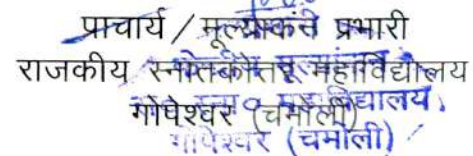 प्राचार्य / मूल्यांकन प्रभारी
राजकीय स्नातकोत्तर महाविद्यालय
गोपेश्वर (चमोली)
महाविद्यालय,
गोपेश्वर (चमोली)